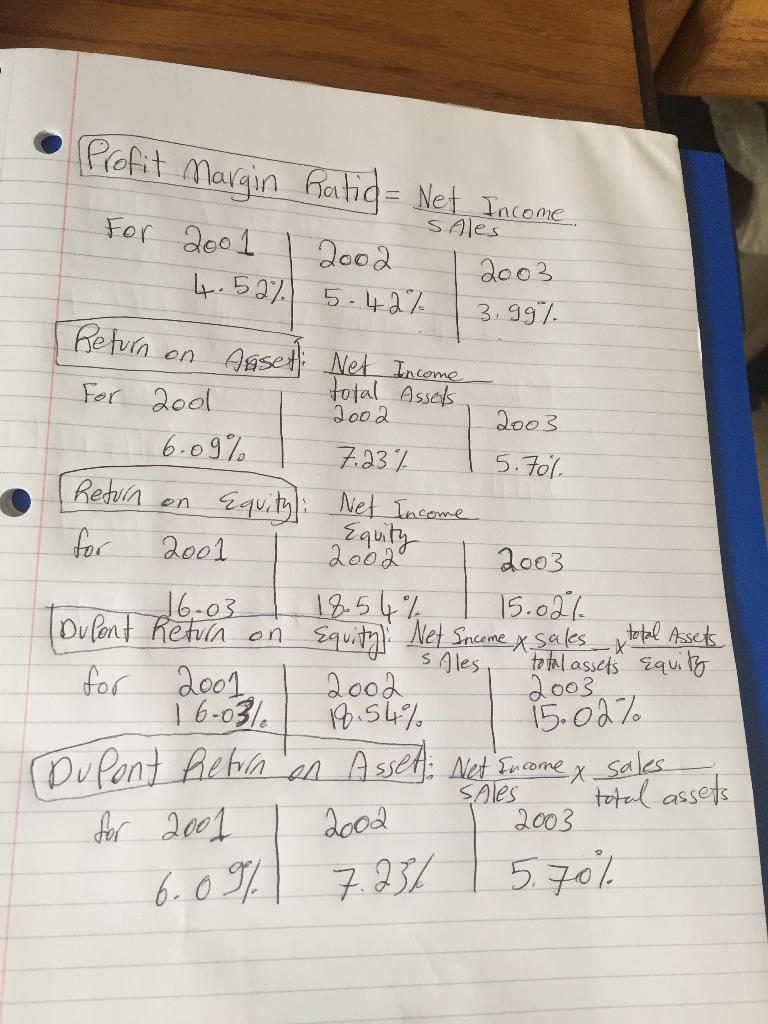 Profit Margin Ratio = Net Income
Sales
For 2001 2002 2003
4.52% 5.42% 3.99%
Return on Asset: Net Income
total Assets
For 2001 2002 2003
6.09% 7.23% 5.70%
Return on Equity: Net Income
Equity
for 2001 2002 2003
16.03 18.54% 15.02%
DuPont Return on Equity: Net Income x sales x total Assets
sAles total assets Equity
for 2001 2002 2003
16.03% 18.54% 15.02%
DuPont Return on Asset: Net Income x sales
sAles total assets
for 2001 2002 2003
6.09% 7.23% 5.70%